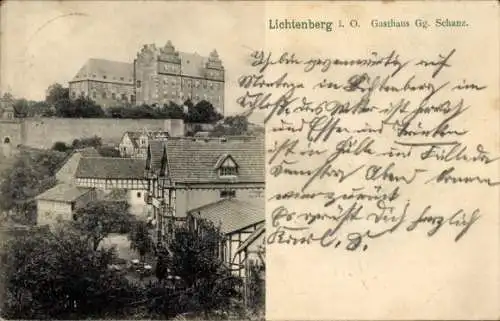 Lichtenberg i. O. Gasthaus Gg. Schanz.
Ich bin gegenwärtig auf
Montage in Lichtenberg im
Schloss, das Bier ist herrlich
und Essen und Trinken
ist in Hülle und Fülle da
Samstag Abend komm
wir zurück
Es grüsst Dich herzlich
Karl